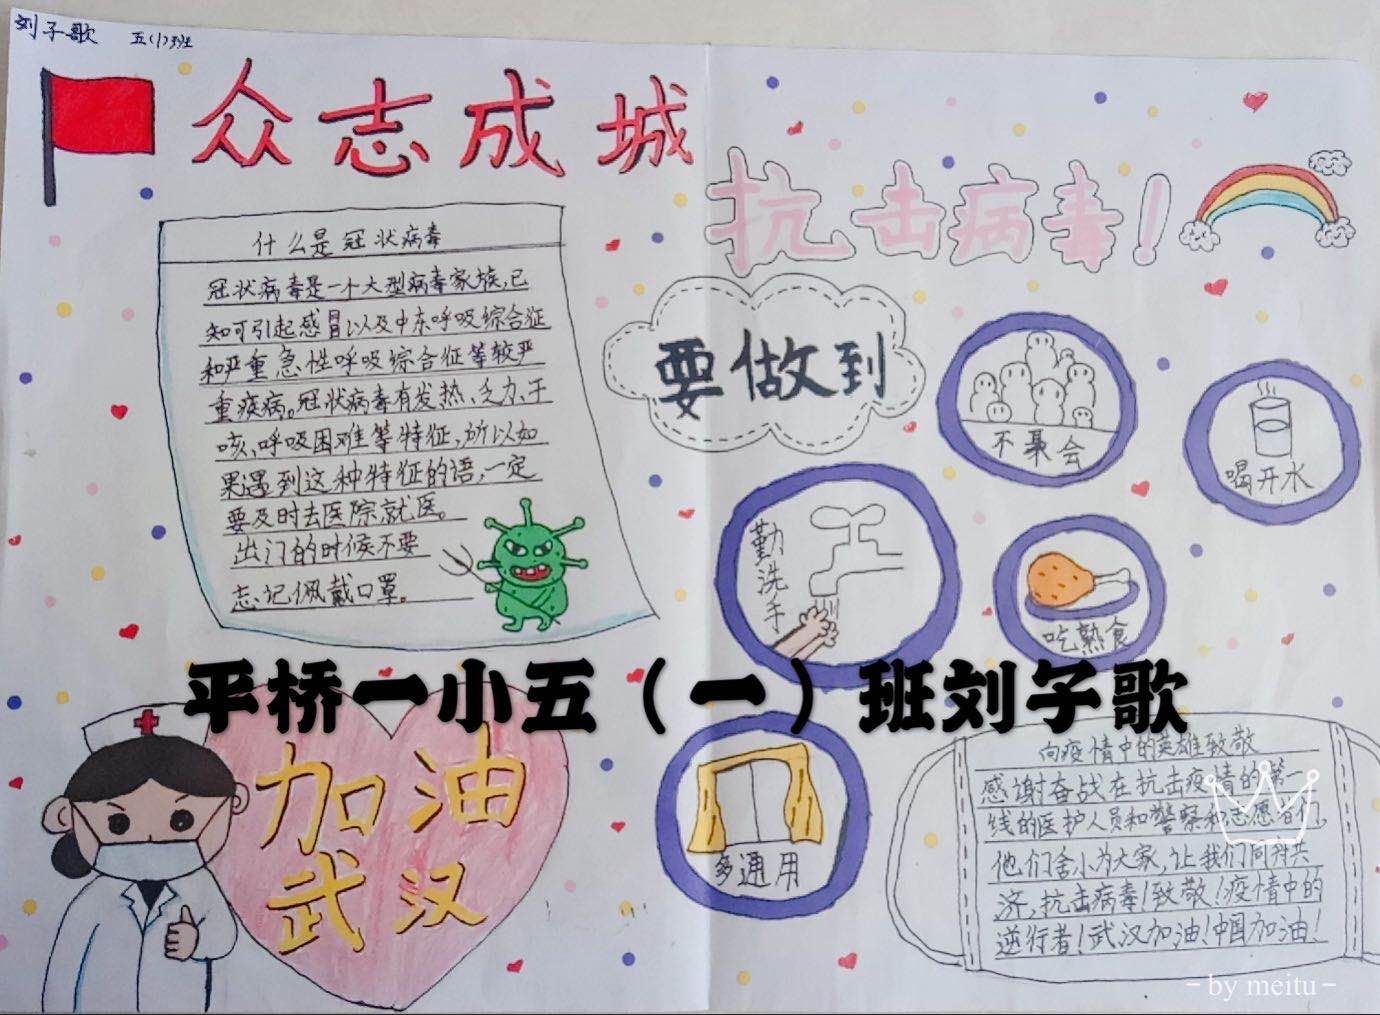 刘子歌 五(1)班
众志成城
抗击病毒!
什么是冠状病毒
冠状病毒是一个大型病毒家族,已
知可引起感冒以及中东呼吸综合征
和严重急性呼吸综合征等较严
重疾病。冠状病毒有发热、乏力、干
咳、呼吸困难等特征,所以如
果遇到这种特征的话,一定
要及时去医院就医。
出门的时候不要
忘记佩戴口罩。
要做到
不聚会
喝开水
勤洗手
吃熟食
平桥一小五(一)班刘子歌
加油
武汉
多通用
向疫情中的英雄致敬
感谢奋战在抗击疫情的第一
线的医护人员和警察和志愿者们,
他们舍小为大家,让我们同舟共
济,抗击病毒!致敬!疫情中的
逆行者!武汉加油!中国加油!
- by meitu -